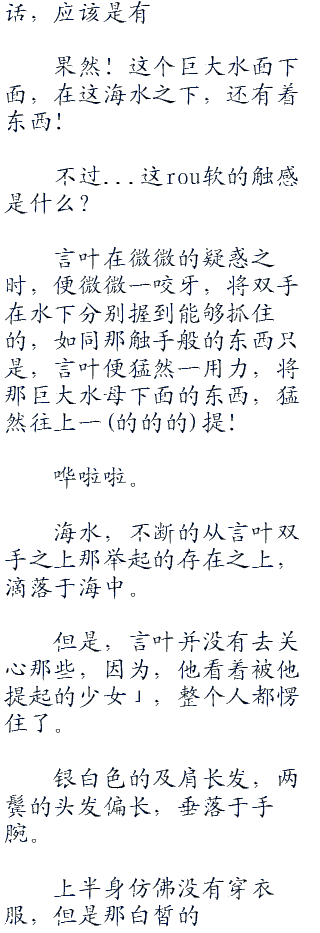 话，应该是有
果然！这个巨大水面下
面，在这海水之下，还有着
东西！
不过...这rou软的触感
是什么？
言叶在微微的疑惑之
时，便微微一咬牙，将双手
在水下分别握到能够抓住
的，如同那触手般的东西只
是，言叶便猛然一用力，将
那巨大水母下面的东西，猛
然往上一(的的的)提！
哗啦啦。
海水，不断的从言叶双
手之上那举起的存在之上，
滴落于海中。
但是，言叶并没有去关
心那些，因为，他看着被他
提起的少女」，整个人都愣
住了。
银白色的及肩长发，两
鬓的头发偏长，垂落于手
腕。
上半身仿佛没有穿衣
服，但是那白皙的